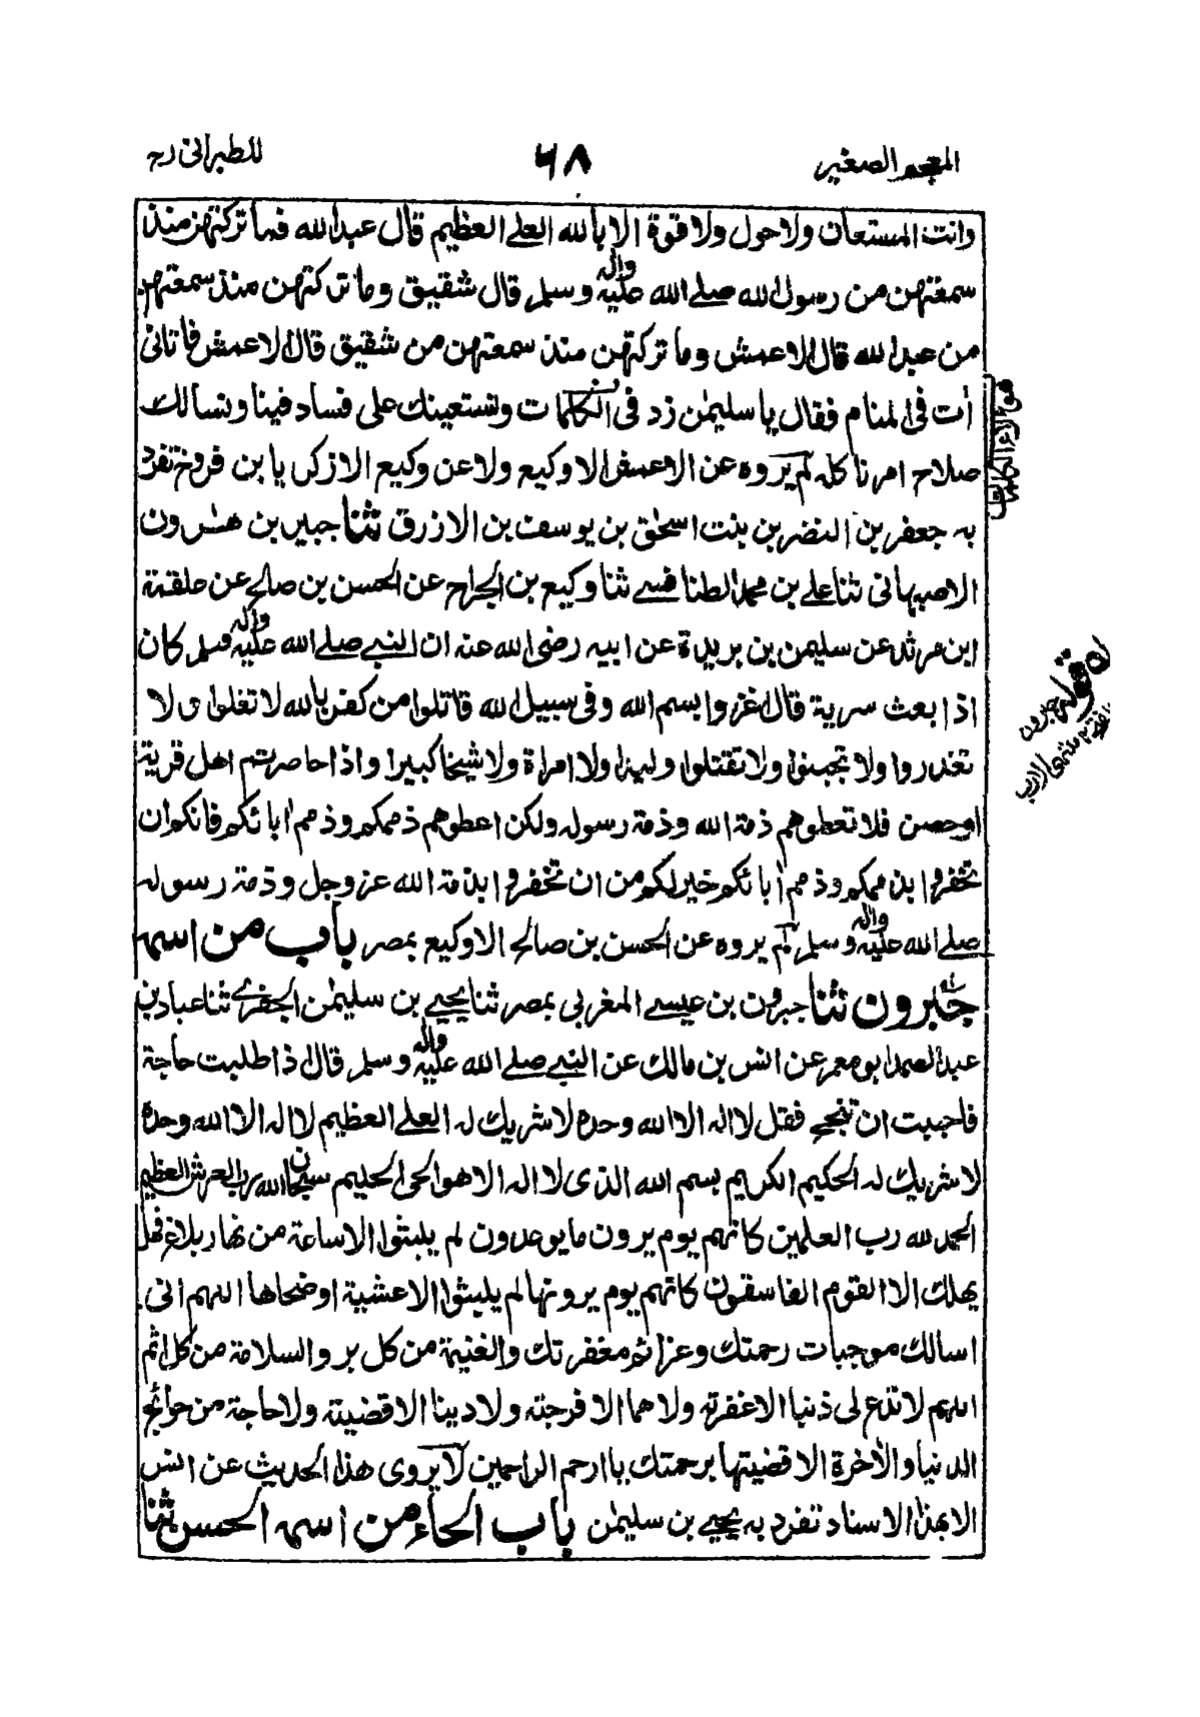 المعجم الصغير
٦٨
للطبرانی رح
وانت المستعان ولا حول ولا قوة الا بالله العلے العظيم قال عبد الله فما تركتهن منذ
سمعتهن من رسول الله صلے الله عليه واله وسلم قال شقيق وما تركتهن منذ سمعتهن
من عبد الله قال الاعمش وما تركتهن منذ سمعتهن من شقيق قال الاعمش فاتانی
أت فی المنام فقال يا سليمٰن زد فی الكلمات ونستعينك علی فساد فينا ونسالك
صلاح امرنا كله لم يروه عن الاعمش الا وكيع ولا عن وكيع الا زكريا بن فروخ تفرد
به جعفر بن النضر بن بنت اسحٰق بن يوسف بن الازرق ثنا جبير بن هٰرون
الاصبهانی ثنا علی بن محمد الطنافسے ثنا وكيع بن الجراح عن الحسن بن صالح عن علقمة
ابن مرثد عن سليمن بن بريدة عن ابيه رضی الله عنه ان النبے صلے الله عليه واله وسلم كان
اذا بعث سرية قال اغزوا بسم الله وفی سبيل الله قاتلوا من كفر بالله لا تغلوا ولا
تغدروا ولا تجبنوا ولا تقتلوا وليدا ولا امراة ولا شيخا كبيرا واذا حاصرتم اهل قرية
او حصن فلا تعطوهم ذمة الله وذمة رسوله ولكن اعطوهم ذممكم وذمم اٰبائكم فانكم ان
تخفروا بذممكم وذمم اٰبائكم خير لكم من ان تخفروا بذمة الله عز وجل وذمة رسوله
صلے الله عليه واله وسلم لم يروه عن الحسن بن صالح الا وكيع بمصر باب من اسمه
جبرون ثنا جبرون بن عيسے المغربی بمصر ثنا يحيے بن سليمٰن الجفرے ثنا عباد بن
عبد الصمد ابو معمر عن انس بن مالك عن النبے صلے الله عليه واله وسلم قال اذا طلبت حاجة
فاحببت ان تنجح فقل لا اله الا الله وحده لا شريك له العلے العظيم لا اله الا الله وحده
لا شريك له الحكيم الكريم بسم الله الذی لا اله الا هو الحی الحليم سبحان الله رب العرش العظيم
الحمد لله رب العلمين كانهم يوم يرون ما يوعدون لم يلبثوا الا ساعة من نهار بلاغ فهل
يهلك الا القوم الفاسقون كانهم يوم يرونها لم يلبثوا الا عشية او ضحاها اللهم انی
اسالك موجبات رحمتك وعزائم مغفرتك والغنيمة من كل بر والسلامة من كل اثم
اللهم لا تدع لی ذنبا الا غفرته ولا هما الا فرجته ولا دينا الا قضيته ولا حاجة من حوائج
الدنيا والاٰخرة الا قضيتها برحمتك يا ارحم الراحمين لا يروی هذا الحديث عن انس
الا بهذا الاسناد تفرد به يحيے بن سليمٰن باب الحاء من اسمه الحسن ثنا
هؤلاء الكلمات